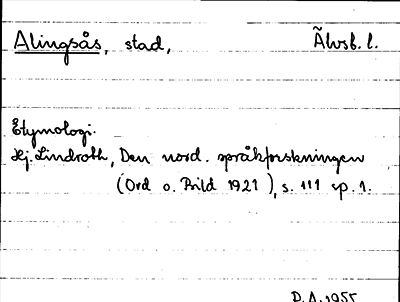 Alingsås, stad, Älvsb. l.
Etymologi.
Hj. Lindroth, Den nord. språkforskningen
(Ord o. Bild 1921), s. 111 sp. 1.
D. A. 1955